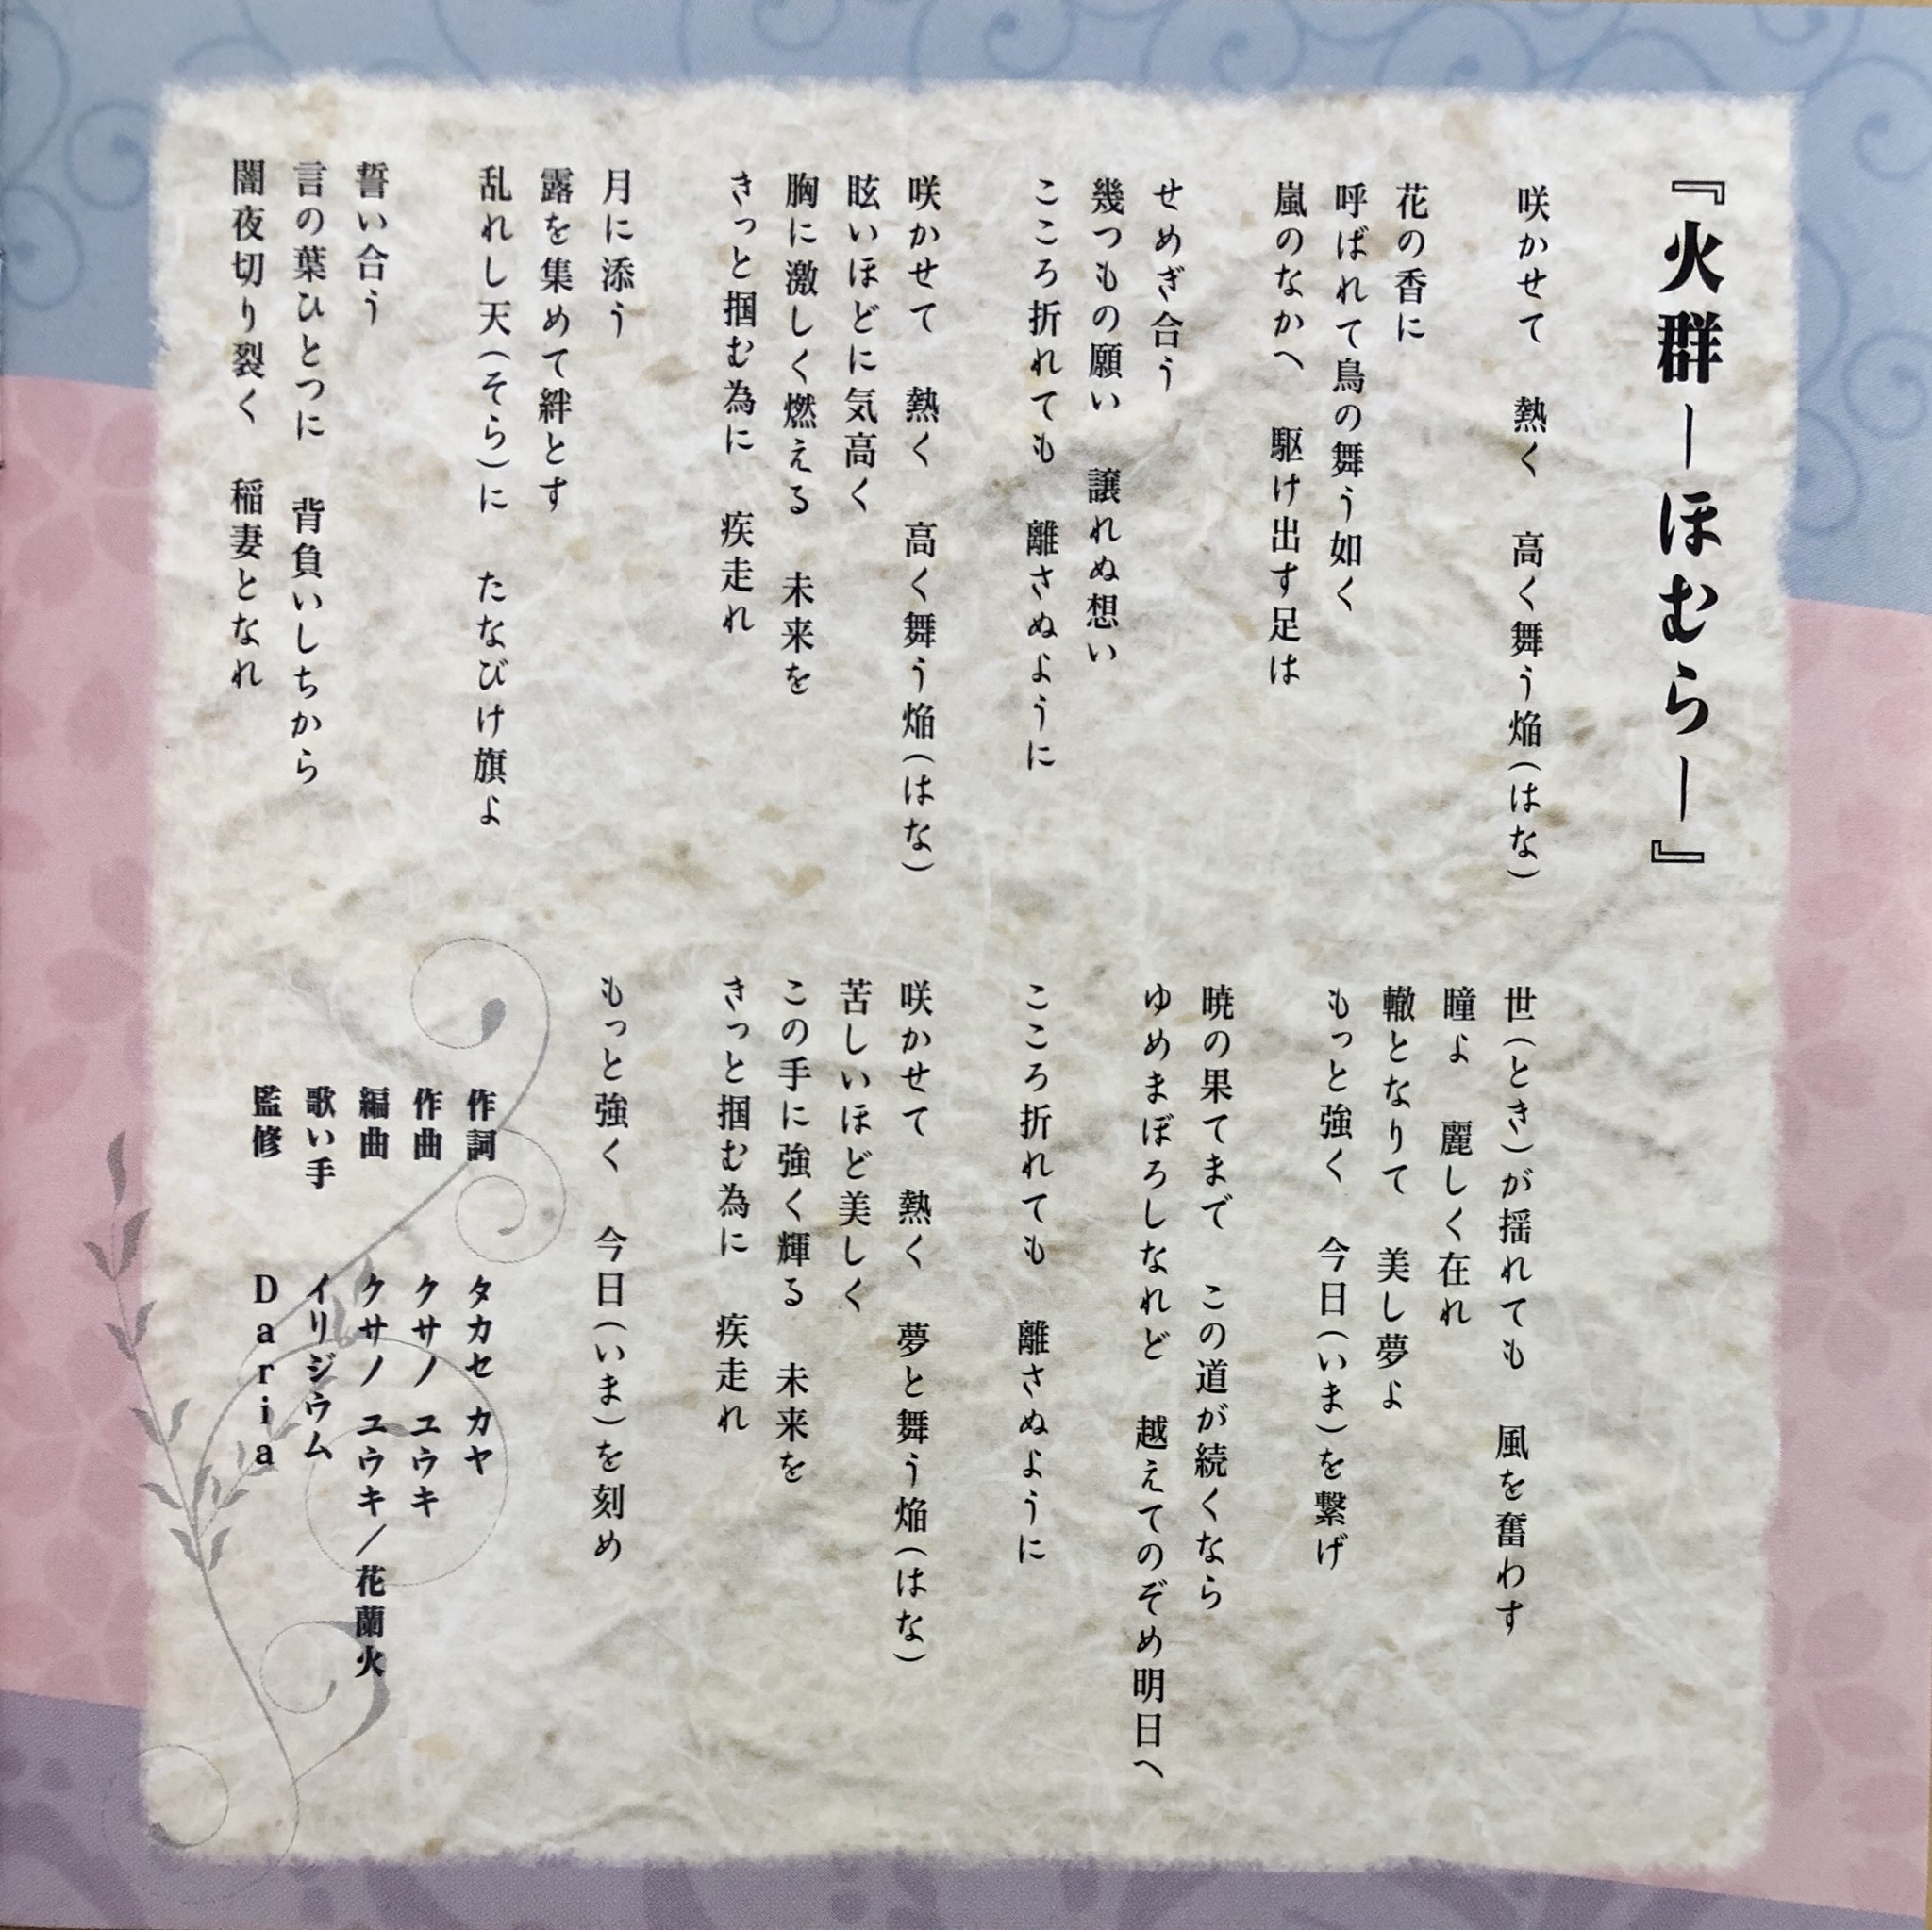 『火群ーほむらー』
咲かせて　熱く　高く舞う焔(はな)
花の香に
呼ばれて鳥の舞う如く
嵐のなかへ　駆け出す足は
せめぎ合う
幾つもの願い　譲れぬ想い
こころ折れても　離さぬように
咲かせて　熱く　高く舞う焔(はな)
眩いほどに気高く
胸に激しく燃える　未来を
きっと掴む為に　疾走れ
月に添う
露を集めて絆とす
乱れし天(そら)に　たなびけ旗よ
誓い合う
言の葉ひとつに　背負いしちから
闇夜切り裂く　稲妻となれ
世(とき)が揺れても　風を奮わす
瞳よ　麗しく在れ
轍となりて　美し夢よ
もっと強く　今日(いま)を繋げ
暁の果てまで　この道が続くなら
ゆめまぼろしなれど　越えてのぞめ明日へ
こころ折れても　離さぬように
咲かせて　熱く　夢と舞う焔(はな)
苦しいほど美しく
この手に強く輝る　未来を
きっと掴む為に　疾走れ
もっと強く　今日(いま)を刻め
作詞　タカセ カヤ
作曲　クサノ ユウキ
編曲　クサノ ユウキ／花蘭火
歌い手　イリジウム
監修　Daria